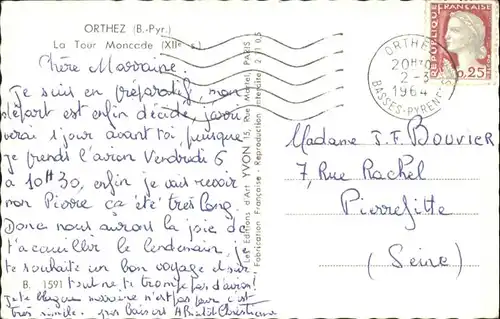 ORTHEZ (B.-Pyr.)
La Tour Moncade (XIIe s.)
Chère Marraine.
Je suis en préparatif, mon
départ est enfin décidé, j'arri
verai 1 jour avant toi, puisque
je prends l'avion Vendredi 6
à 10H30, enfin je vais revoir
mon Pierre ça été très long.
Donc nous aurons la joie de
t'accueillir le lendemain, je
te souhaite un bon voyage
tout ne te trompe pas d'avion!
Je te marraine n'est pas pour c'est
très simple. gros baisers Christiane
B. 1591
Les Éditions d'Art YVON 15, Rue Martel, PARIS
Fabrication Française - Reproduction interdite
RÉPUBLIQUE FRANÇAISE
0,25
ORTHEZ
20H30
2-3
1964
BASSES-PYRENEES
Madame J. F. BOUVIER
7, Rue Rachel
Pierrefitte
(Seine)